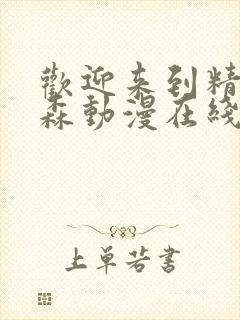 歡迎来到精
森動漫在綫
上单若書